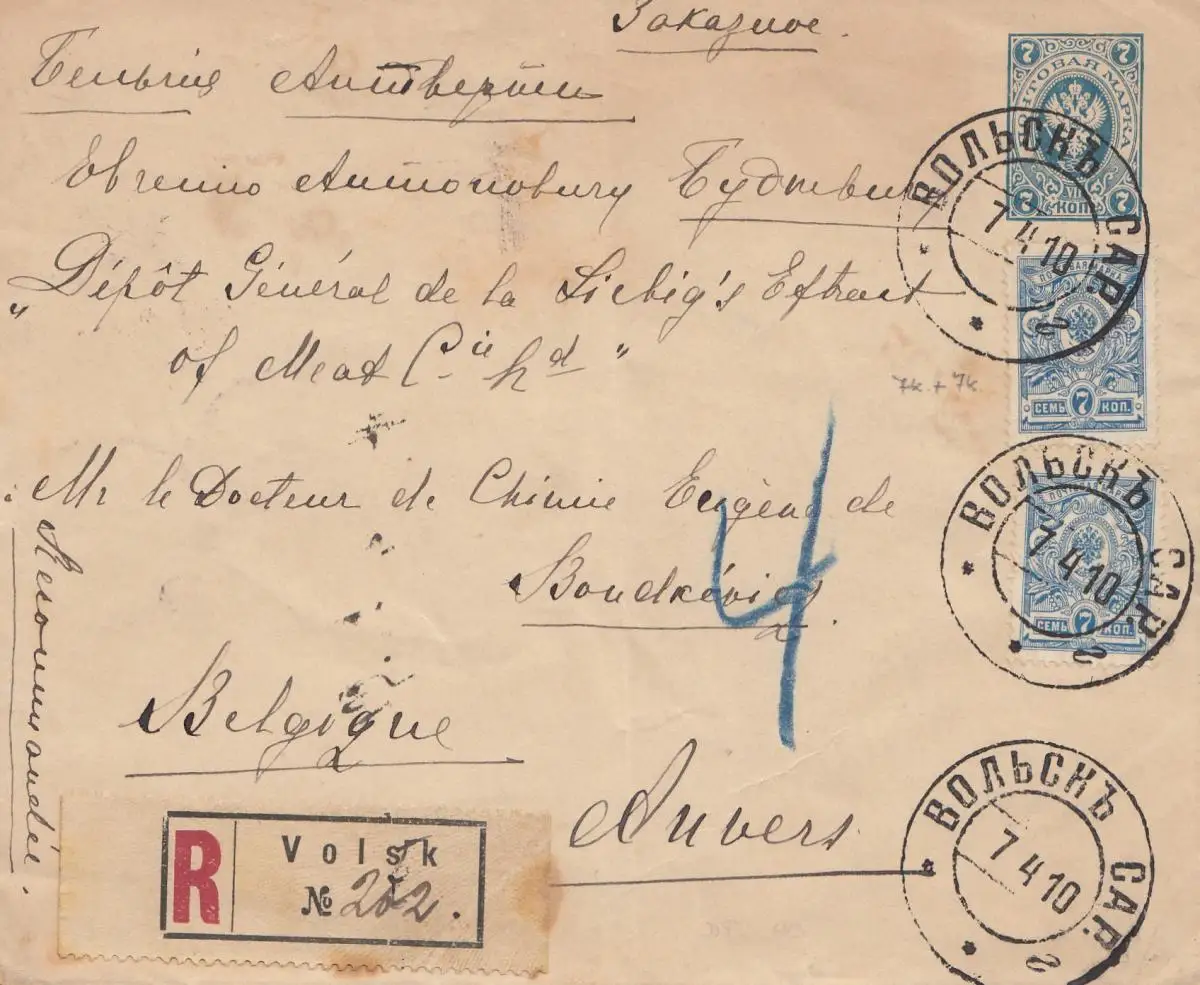 Заказное.
Бельгія Антверпен
Евгенію Антоновичу
„Dépôt Général de la Liebig's Extract
of Meat Cie Ld"
Mr le Docteur de Chimie Eugène de
Boudkévicz
Belgique
Anvers.
Recommandée.
4
7k + 7k
R
Volsk
№ 202.
7 7
ПОЧТОВАЯ МАРКА
VII
КОП.
7 7
ВОЛЬСКЪ САР.
7 4 10
2
ПОЧТОВАЯ МАРКА
СЕМЬ 7 КОП.
ВОЛЬСКЪ САР.
7 4 10
2
СЕМЬ 7 КОП.
ВОЛЬСКЪ САР.
7 4 10
2